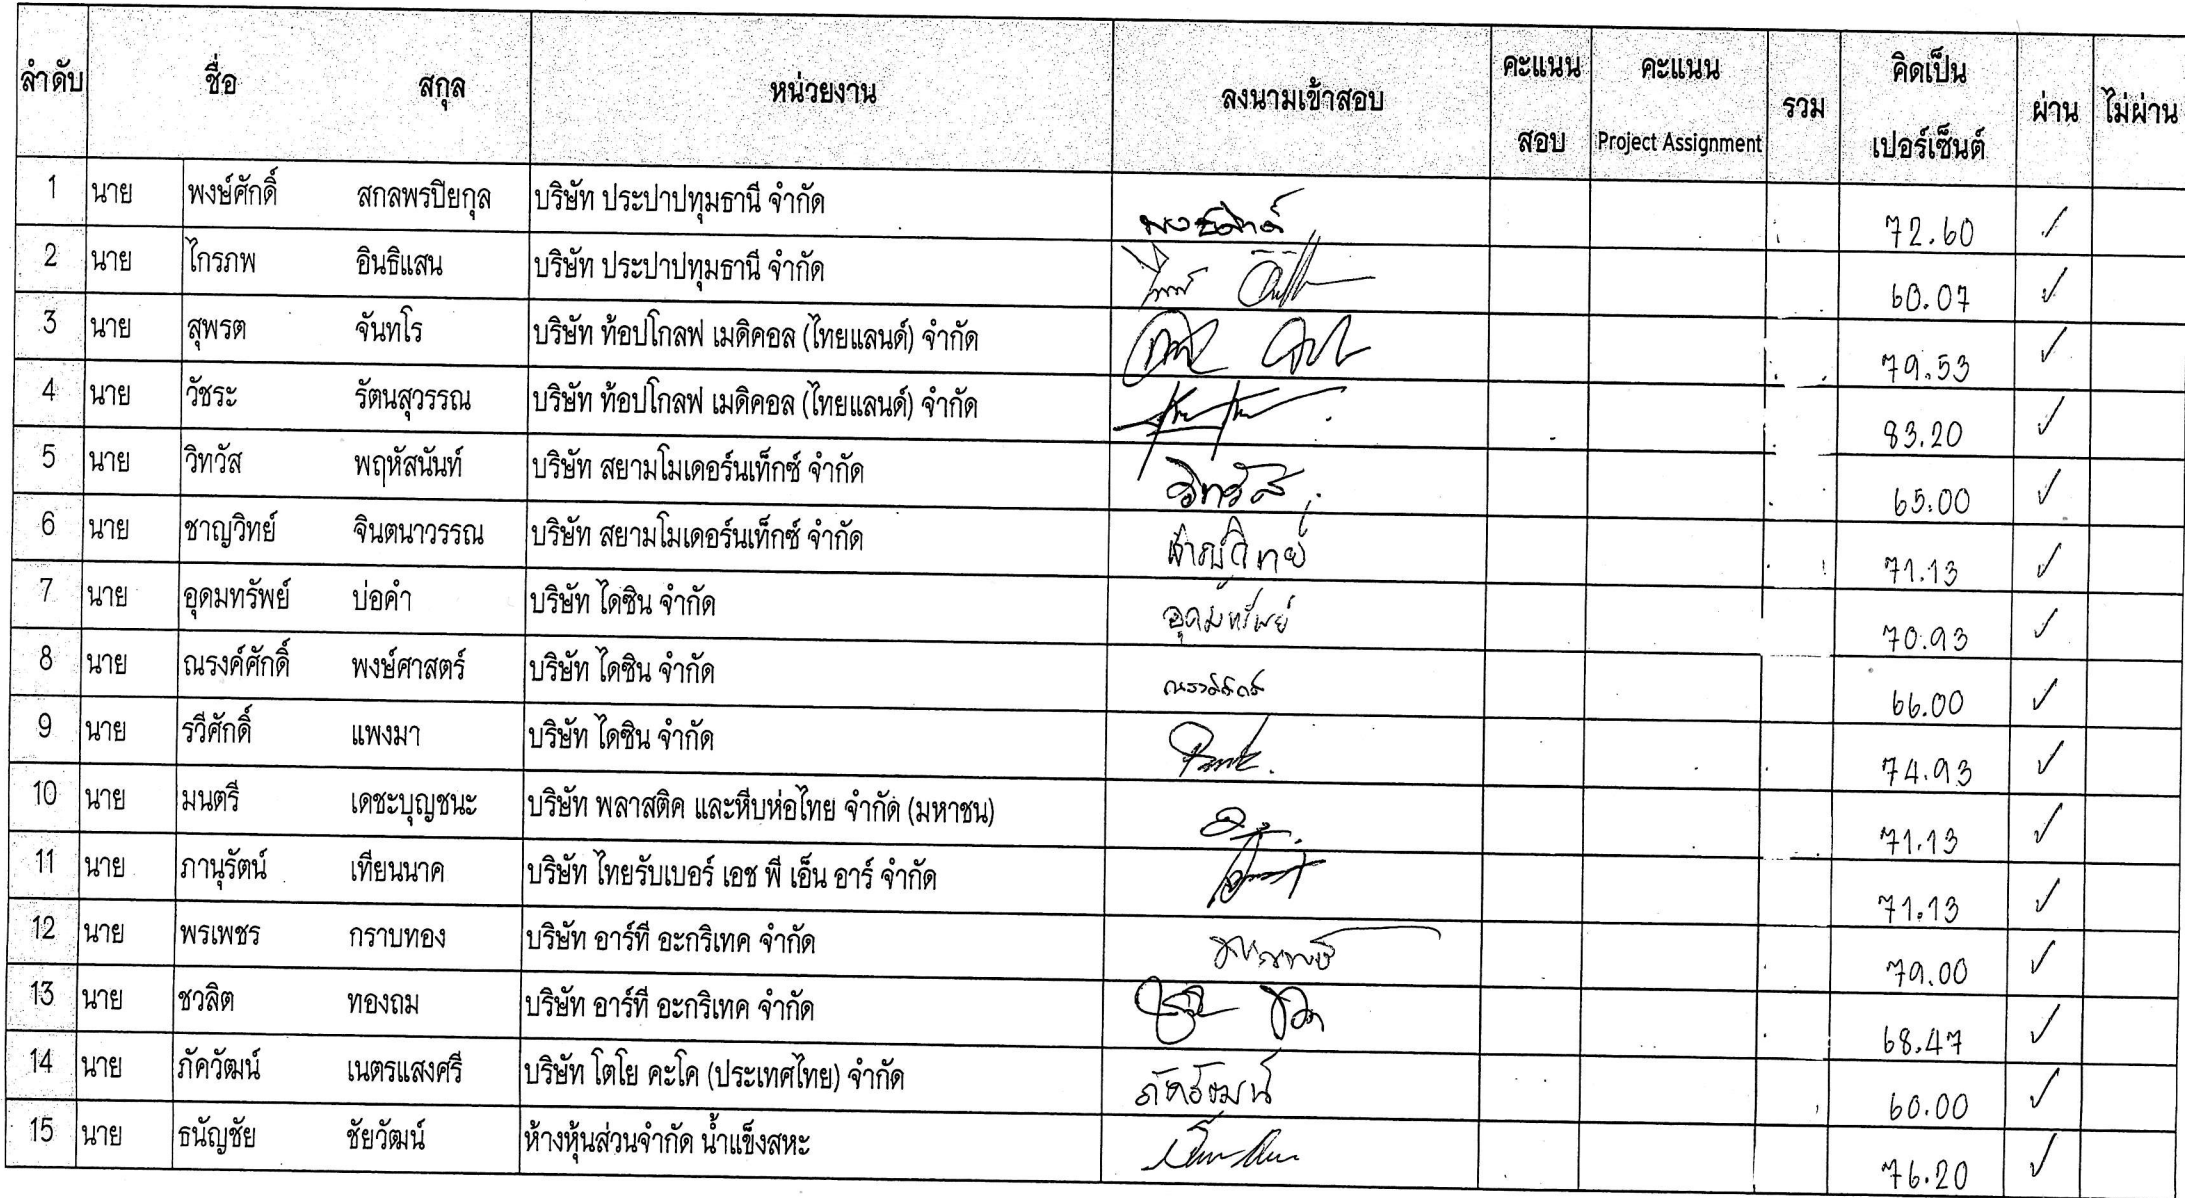 ลำดับ ชื่อ สกุล หน่วยงาน ลงนามเข้าสอบ คะแนน สอบ คะแนน Project Assignment รวม คิดเป็น เปอร์เซ็นต์ ผ่าน ไม่ผ่าน
1 นาย พงษ์ศักดิ์ สกลพรปิยกุล บริษัท ประปาปทุมธานี จำกัด พงษ์ศักดิ์ 72.60 ✓
2 นาย ไกรภพ อินธิแสน บริษัท ประปาปทุมธานี จำกัด 60.07 ✓
3 นาย สุพรต จันทโร บริษัท ท้อปโกลฟ เมดิคอล (ไทยแลนด์) จำกัด 79.53 ✓
4 นาย วัชระ รัตนสุวรรณ บริษัท ท้อปโกลฟ เมดิคอล (ไทยแลนด์) จำกัด 83.20 ✓
5 นาย วิทวัส พฤหัสนันท์ บริษัท สยามโมเดอร์นเท็กซ์ จำกัด วิทวัส 65.00 ✓
6 นาย ชาญวิทย์ จินตนาวรรณ บริษัท สยามโมเดอร์นเท็กซ์ จำกัด ชาญวิทย์ 71.13 ✓
7 นาย อุดมทรัพย์ บ่อคำ บริษัท ไดซิน จำกัด อุดมทรัพย์ 70.93 ✓
8 นาย ณรงค์ศักดิ์ พงษ์ศาสตร์ บริษัท ไดซิน จำกัด ณรงค์ศักดิ์ 66.00 ✓
9 นาย รวีศักดิ์ แพงมา บริษัท ไดซิน จำกัด 74.93 ✓
10 นาย มนตรี เดชะบุญชนะ บริษัท พลาสติค และหีบห่อไทย จำกัด (มหาชน) 71.13 ✓
11 นาย ภานุรัตน์ เทียนนาค บริษัท ไทยรับเบอร์ เอช พี เอ็น อาร์ จำกัด 71.13 ✓
12 นาย พรเพชร กราบทอง บริษัท อาร์ที อะกริเทค จำกัด 79.00 ✓
13 นาย ชวลิต ทองถม บริษัท อาร์ที อะกริเทค จำกัด 68.47 ✓
14 นาย ภัควัฒน์ เนตรแสงศรี บริษัท โตโย คะโค (ประเทศไทย) จำกัด ภัควัฒน์ 60.00 ✓
15 นาย ธนัญชัย ชัยวัฒน์ ห้างหุ้นส่วนจำกัด น้ำแข็งสหะ 76.20 ✓